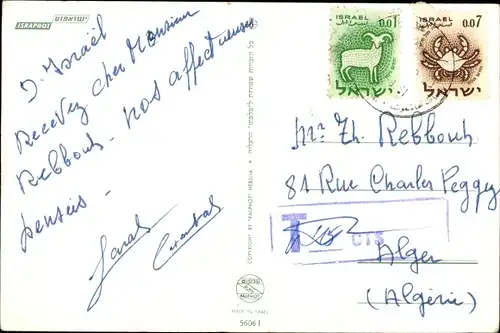 ישראפוט
PALPHOT
D'Israël
Recevez cher Monsieur
Rebbouh - nos affectueuses
pensées.
כל הזכויות שמורות ל"פלפוט" הרצליה
COPYRIGHT BY "PALPHOT" HERZLIA
MADE IN ISRAEL
56061
ISRAEL 0.01
ישראל
ISRAEL 0.07
ישראל
Mr Th. Rebbouh
81 Rue Charles Peggey
T
CTS
Alger
(Algérie)